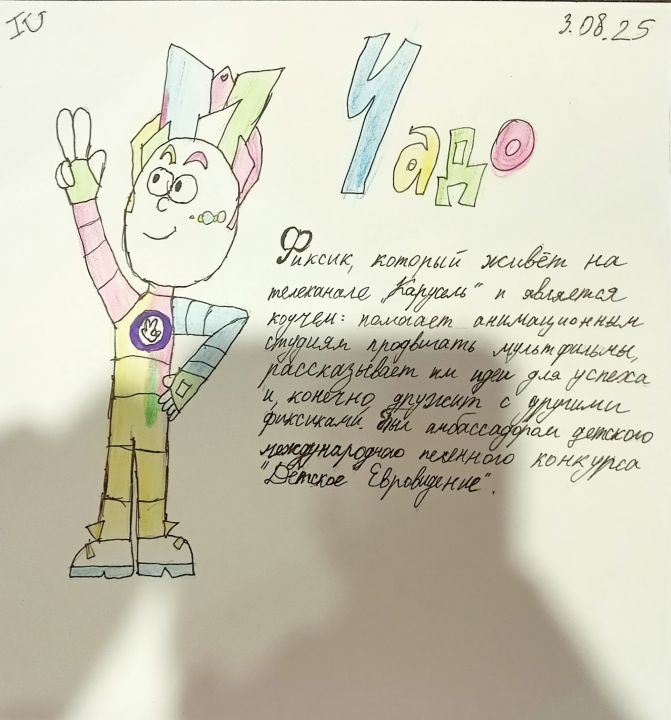 IV
3.08.25
Чадо
Фиксик, который живёт на
телеканале "Карусель" и является
коучем: помогает анимационным
студиям продвигать мультфильмы,
рассказывает им идеи для успеха
и, конечно, дружит с другими
фиксиками. Был амбассадором детского
международного песенного конкурса
"Детское Евровидение".